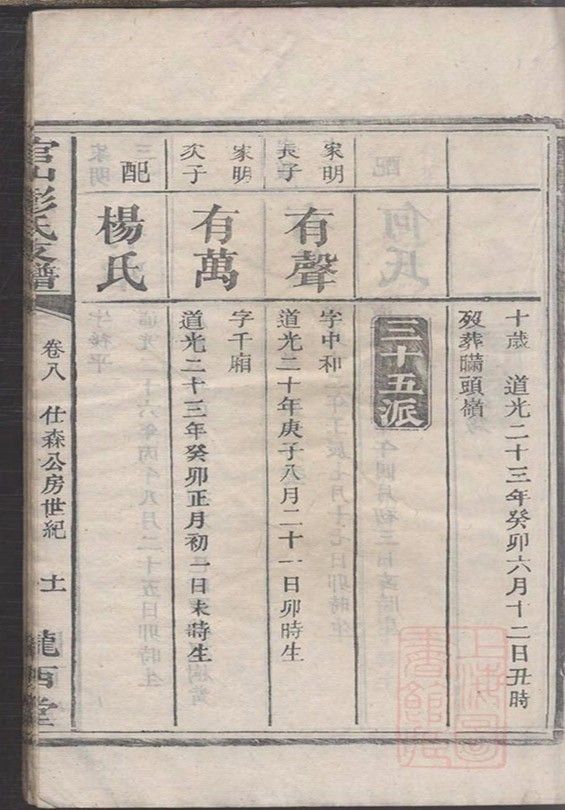 十歲　道光二十三年癸卯六月十二日丑時
歿葬瞞頭嶺
三十五派
家明
長子
有聲
字中和
道光二十年庚子八月二十一日卯時生
家明
次子
有萬
字千廂
道光二十三年癸卯正月初一日未時生
配
楊氏
官山彭氏支譜
卷八　仕森公房世紀　十一
隴西堂
上海圖書館藏